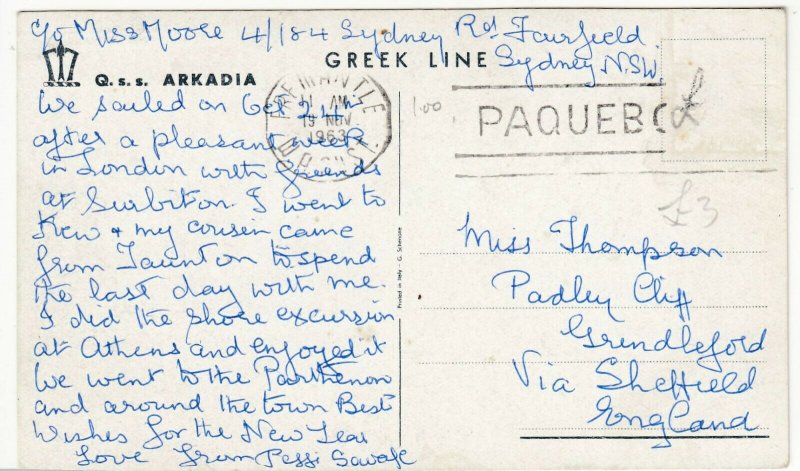 c/o Miss Moore 4/184 Sydney Rd Fairfield
Sydney N.S.W.
GREEK LINE
Q.s.s. ARKADIA
We sailed on Oct 24th
after a pleasant week
in London with friends
at Surbiton. I went to
Kew & my cousin came
from Taunton to spend
the last day with me.
I did the shore excursion
at Athens and enjoyed it
We went to the Parthenon
and around the town Best
Wishes for the New Year
Love from Peggi Savage
FREMANTLE
11 AM
19 NOV
1963
100.
PAQUEBO
£3
Printed in Italy - G. Schenone
Miss Thompson
Padley Cliff
Grindleford
Via Sheffield
England